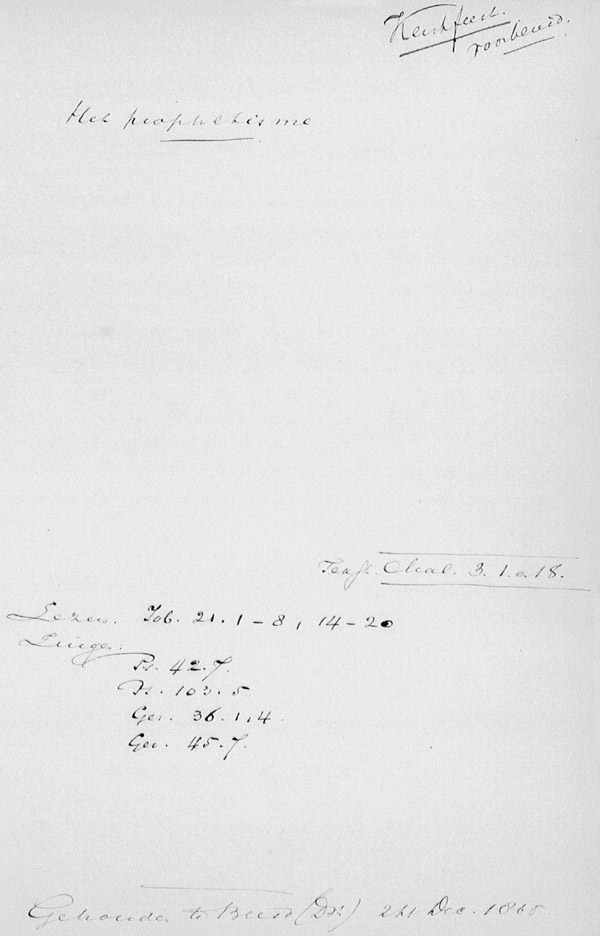 Kerstfeest.
voorbereid.
Het prophetisme
Text. Mal. 3. 1. e. 18.
Lezen. Job. 21. 1-8, 14-20
Zingen:
Ps. 42. 7.
Ps. 103. 5
Gez. 36. 1, 4.
Gez. 45. 7.
Gehouden te (Dr.) 24 Dec. 1865